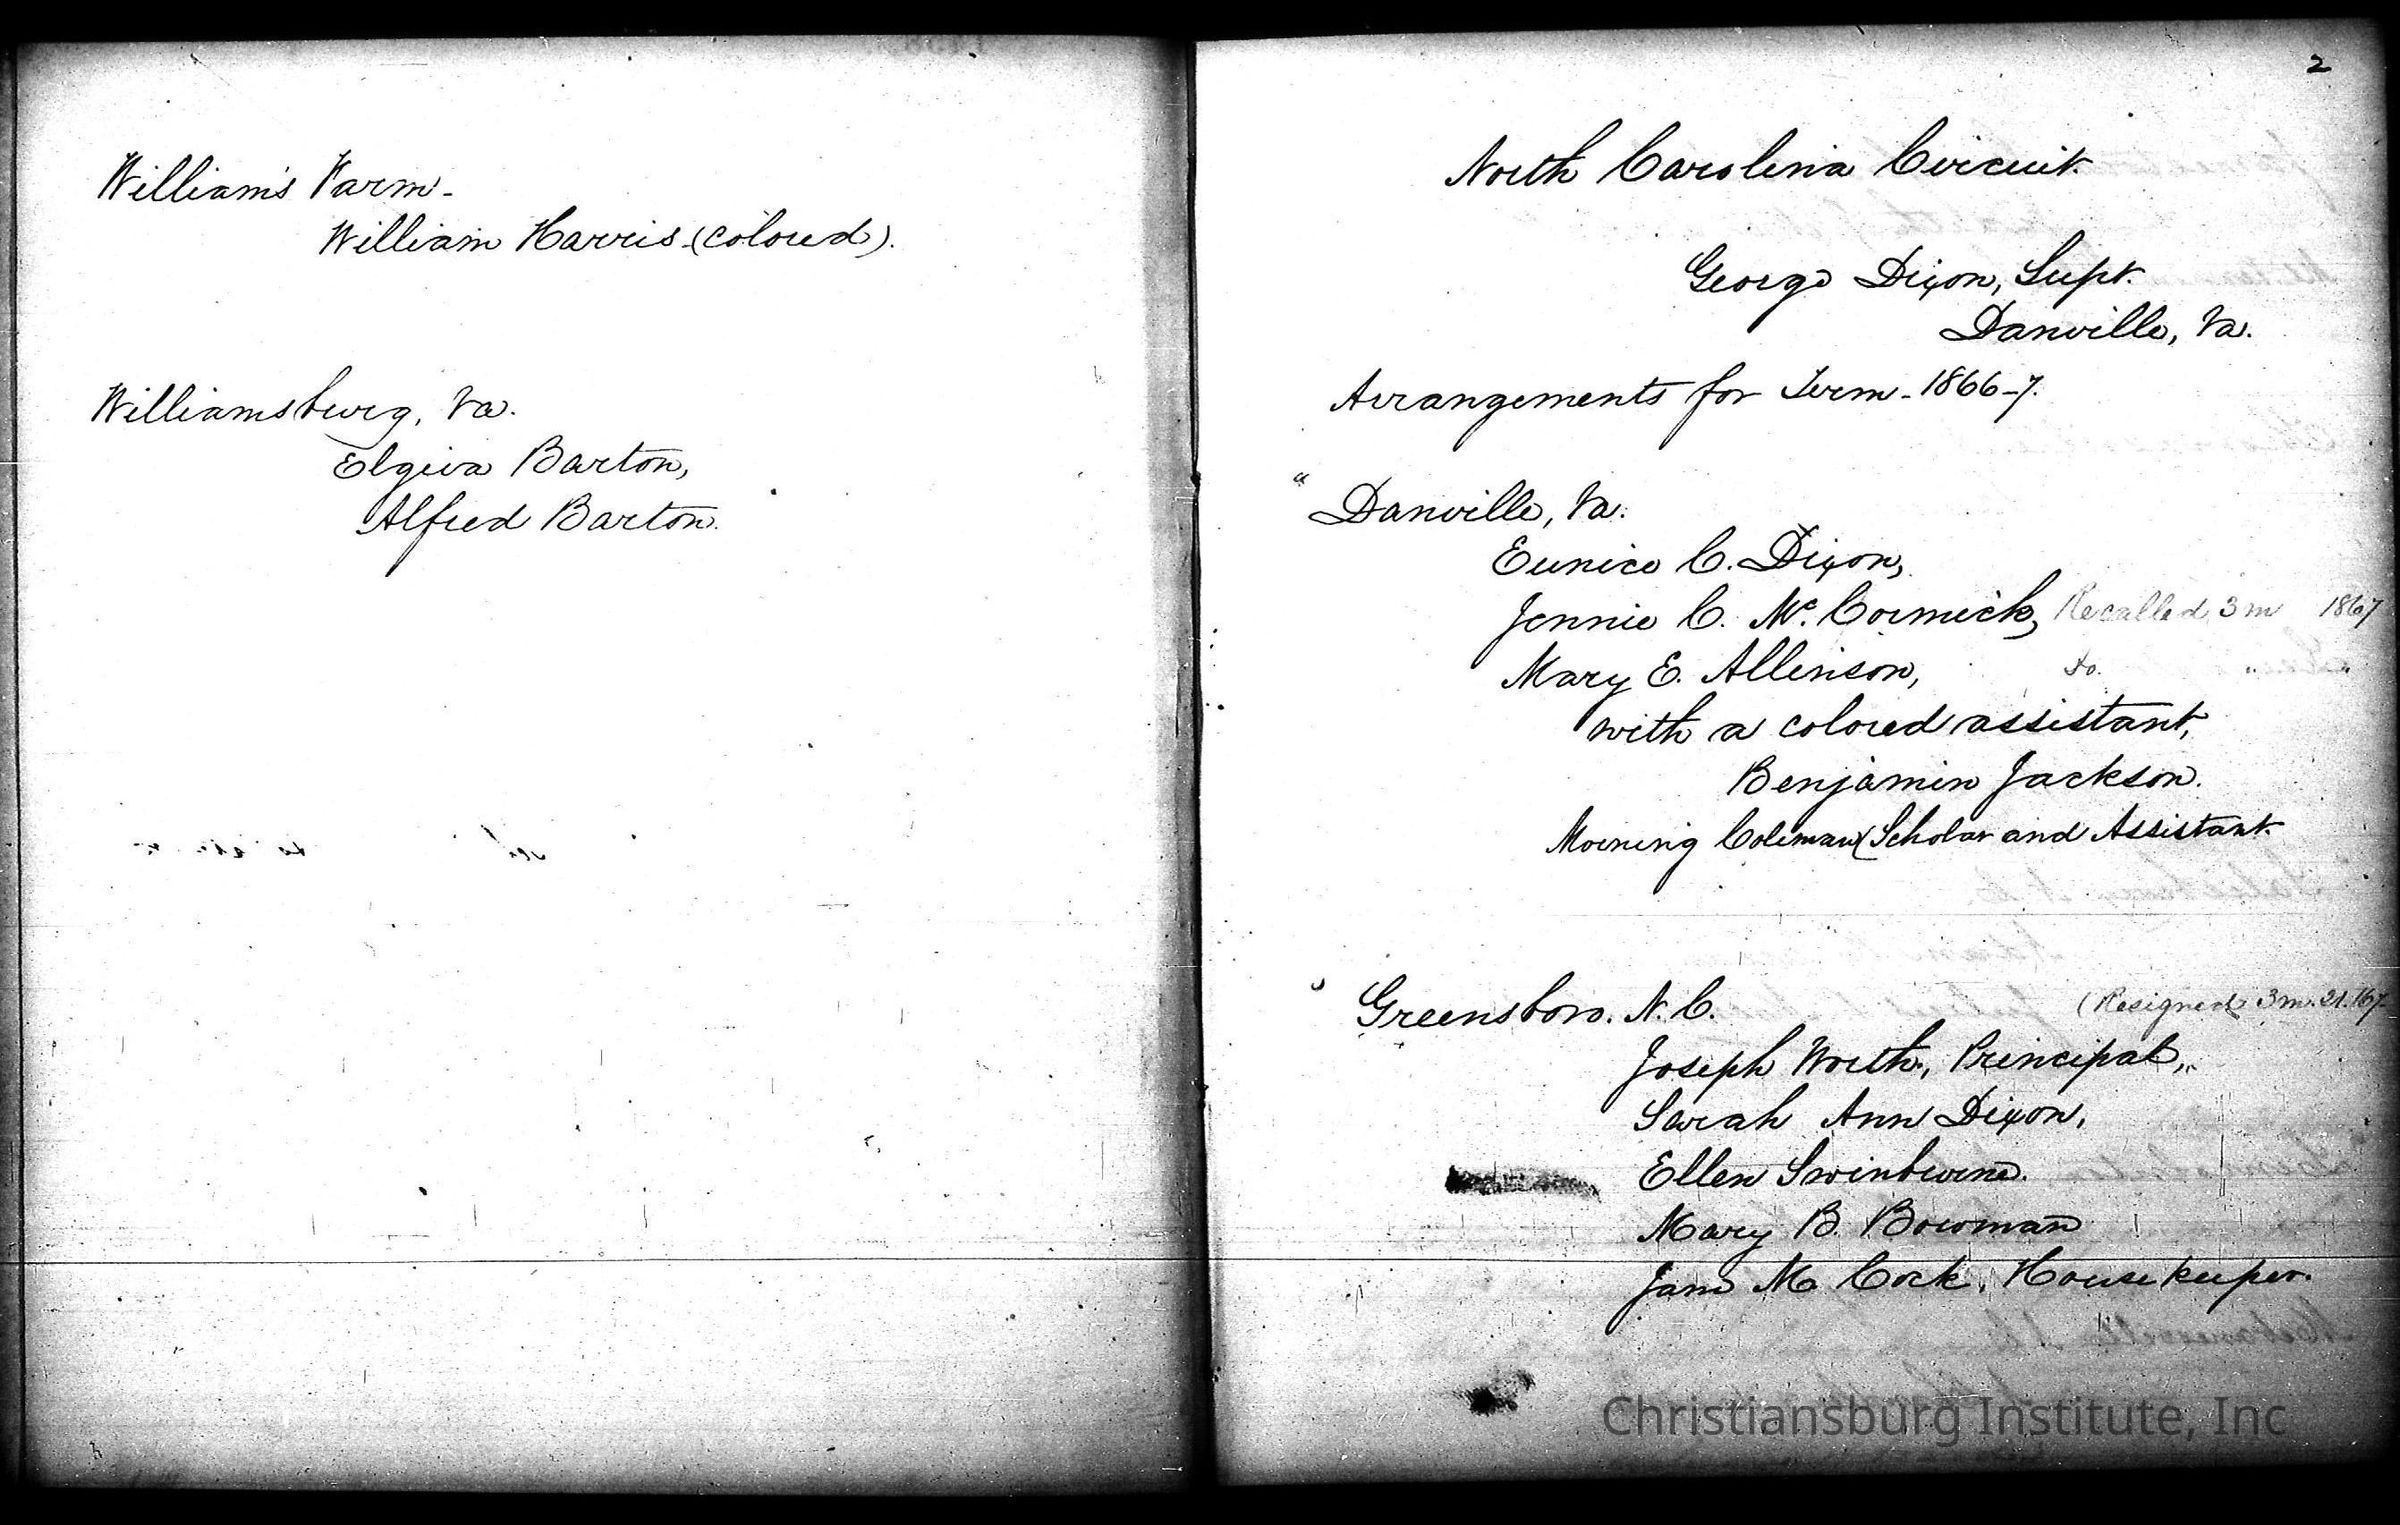 Williams Farm-
William Harris-(colored).
Williamsburg, Va.
Elgiva Barton,
Alfred Barton.
2
North Carolina Circuit.
George Dixon, Supt.
Danville, Va.
Arrangements for Term-1866-7.
" Danville, Va.
Eunice C. Dixon,
Jennie C. McCormick, Recalled 3m 1867
Mary E. Allinson, do. " "
with a colored assistant,
Benjamin Jackson.
Morning Coleman (Scholar and Assistant.
" Greensboro. N.C. (Resigned 3m. 21. 167-
Joseph Worth, Principal,
Sarah Ann Dixon,
Ellen Swinburne.
Mary B. Bowman
Jane M Cock, Housekeeper.
Christiansburg Institute, Inc